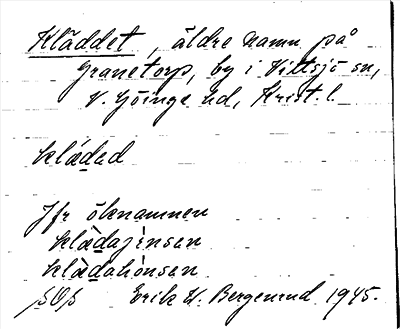 Kläddet, äldre namn på
Granetorp, by i Vittsjö sn,
V. Göinge hd, Krist. l.
klädəd
Jfr öknamnen
klädajinsən
klädahönsen
Erik K. Bergenrud 1945.